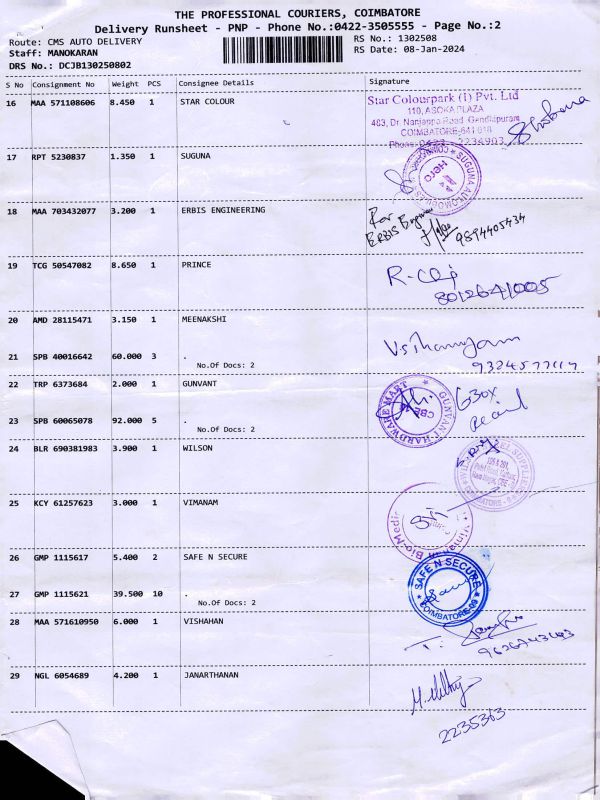 THE PROFESSIONAL COURIERS, COIMBATORE
Delivery Runsheet - PNP - Phone No.:0422-3505555 - Page No.:2
Route: CMS AUTO DELIVERY
Staff: MANOKARAN
RS No.: 1302508
RS Date: 08-Jan-2024
DRS No.: DCJB130250802
S No Consignment No Weight PCS Consignee Details Signature
16 MAA 571108606 8.450 1 STAR COLOUR
Star Colourpark (I) Pvt. Ltd
110, ASOKA PLAZA
483, Dr. Nanjappa Road, Gandhipuram
COIMBATORE-641 018
Phone: 0422 2234903
17 RPT 5230837 1.350 1 SUGUNA
SUGUNA AUTOMOBILES
Hero
18 MAA 703432077 3.200 1 ERBIS ENGINEERING
For
ERBIS Engineer
9894405434
19 TCG 50547082 8.650 1 PRINCE
8012641005
20 AMD 28115471 3.150 1 MEENAKSHI
21 SPB 40016642 60.000 3 .
No.Of Docs: 2
22 TRP 6373684 2.000 1 GUNVANT
GUNVANT HARDWARE MART
CBE
23 SPB 60065078 92.000 5 .
No.Of Docs: 2
24 BLR 690381983 3.900 1 WILSON
25 KCY 61257623 3.000 1 VIMANAM
Bio-Medic
26 GMP 1115617 5.400 2 SAFE N SECURE
SAFE N SECURE
COIMBATORE-09
27 GMP 1115621 39.500 10 .
No.Of Docs: 2
28 MAA 571610950 6.000 1 VISHAHAN
29 NGL 6054689 4.200 1 JANARTHANAN
2235363